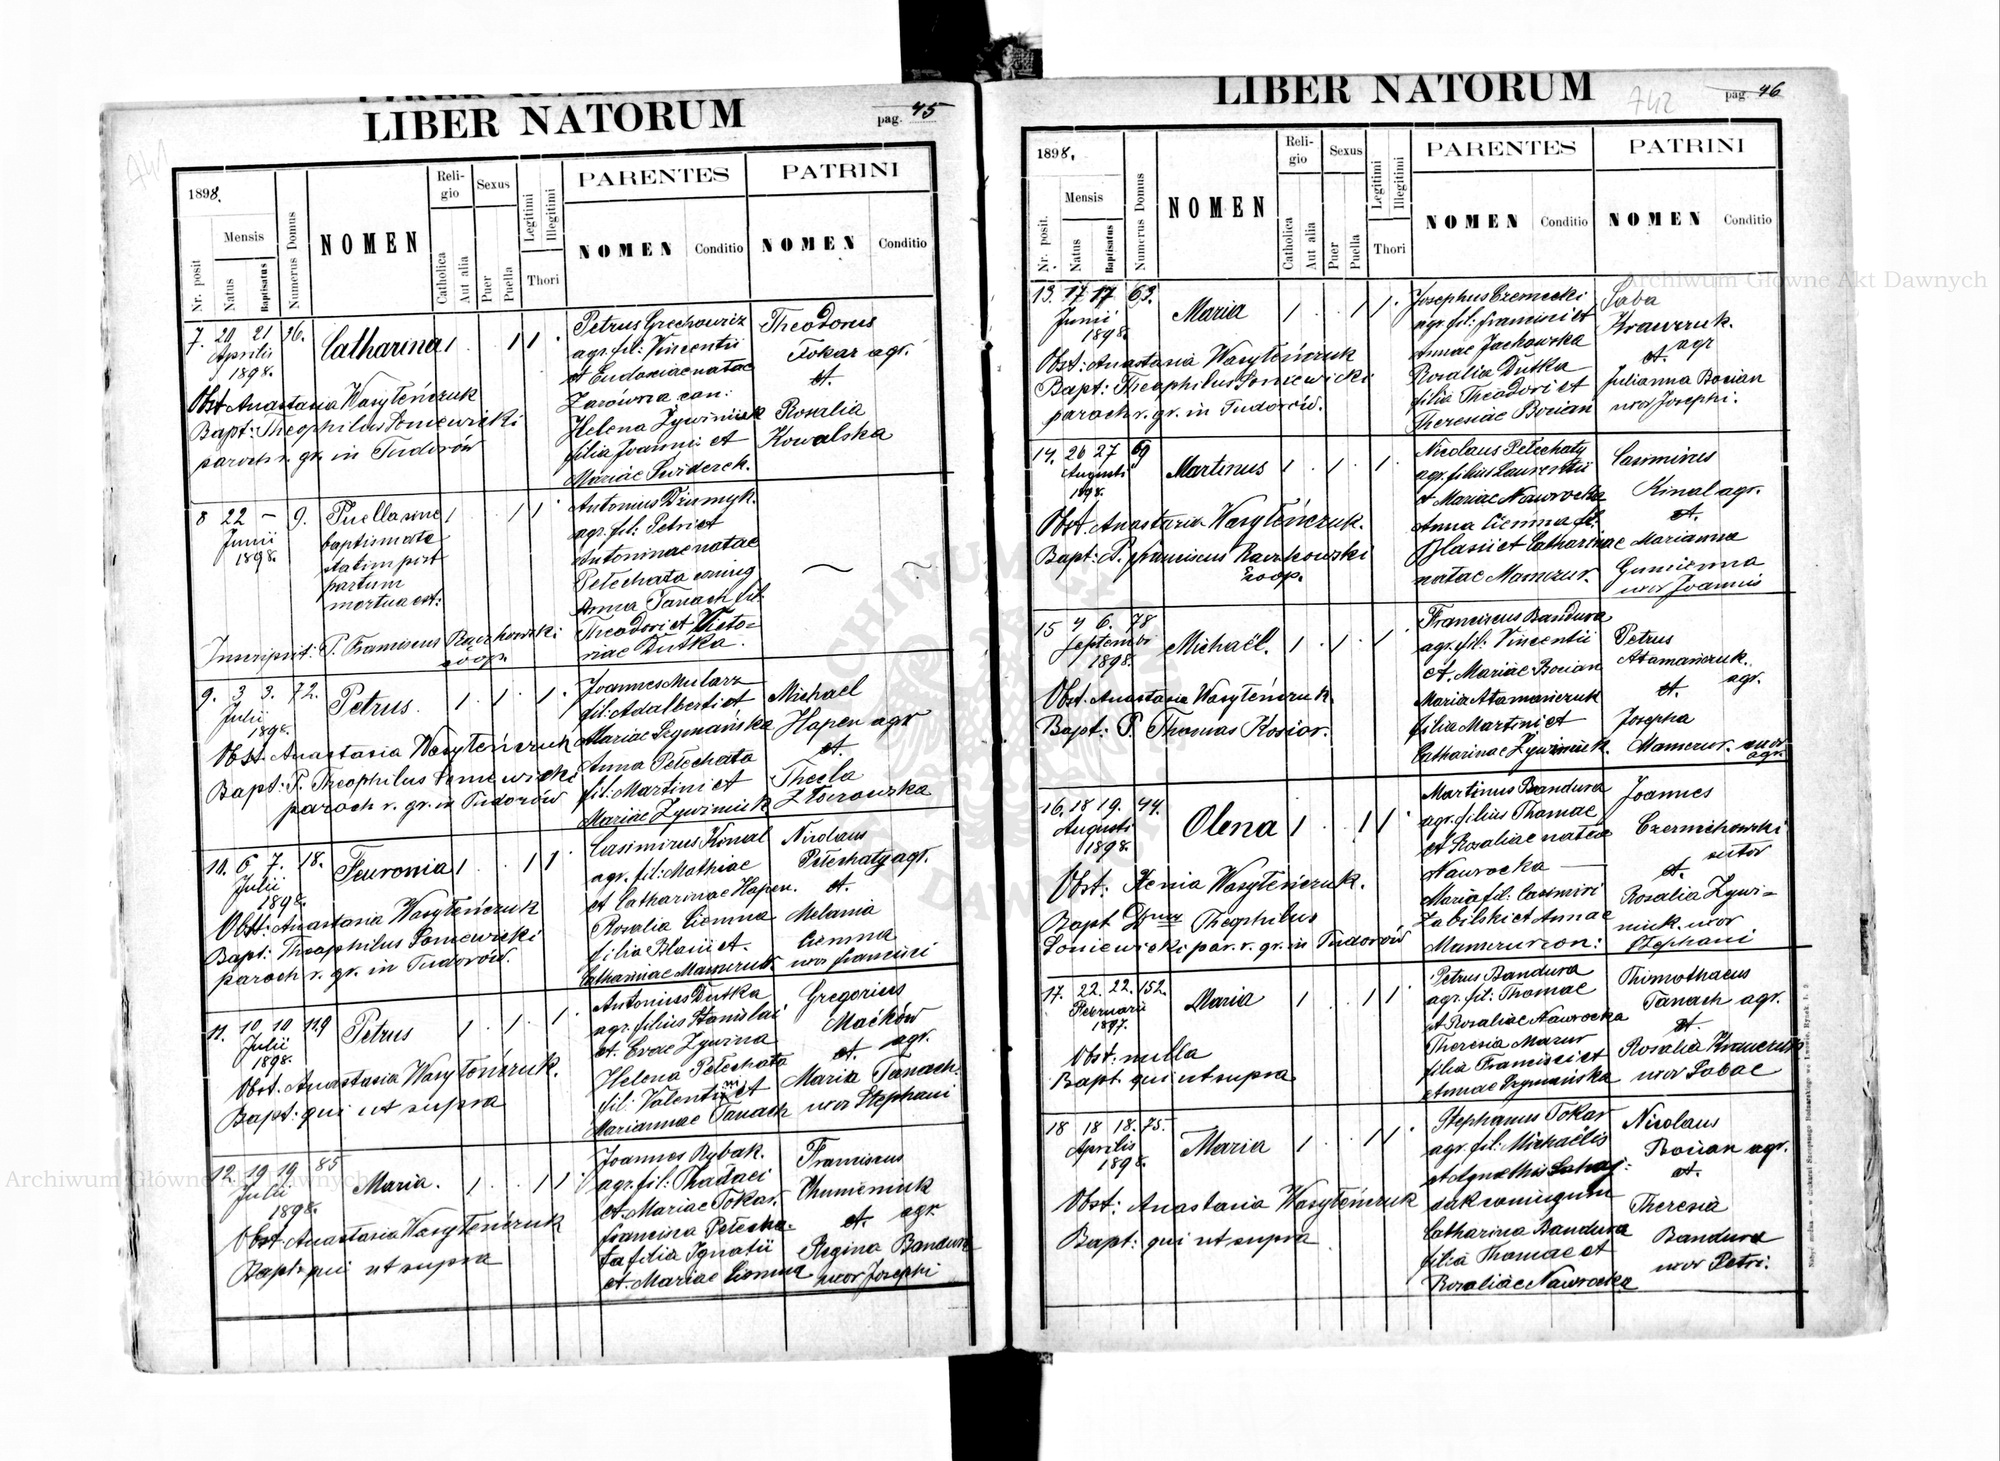 LIBER NATORUM
pag. 45
741
1898.
Nr. posit
Mensis
Natus
Baptisatus
Numerus Domus
NOMEN
Religio
Catholica
Aut alia
Sexus
Puer
Puella
Legitimi
Illegitimi
Thori
PARENTES
NOMEN
Conditio
PATRINI
NOMEN
Conditio
7. 20 21 26. Catharina 1 1 1
Aprilis
1898.
Obst Anastasia Wasyłeńczuk
Bapt: Theophilus Soniewicki
paroch r. gr. in Tudorów
Petrus Grechowicz
agr. fil: Vincentii
et Eudoxiae natae
Helena Żywiniuk
filia Joannis et
Mariae Świderek.
Theodorus
Tokar agr.
et.
Rosalia
Kowalska
8 22 — 9. Puella sine 1 1 1
Junii
1898.
baptismate
statim post
partum
mortua est.
Inscripsit: P. Franciscus Raczkowski
coop.
Antonius Dziumyk.
agr. fil: Petri et
Antoninae natae
Pełechata coniug
Anna Tanach fil.
Theodori et Victo-
riae Dutka.
9. 3 3. 72. Petrus. 1 1 1
Julii
1898.
Obst. Anastasia Wasyłeńczuk
Bapt: P. Theophilus Soniewicki
paroch r. gr. in Tudorów
Joannes Mularz
fil: Adalberti et
Mariae Szymańska
Anna Pełechata
fil: Martini et
Mariae Żywiniuk
Michael
Hapen agr
et
Thecla
Złoczowska
10. 6 7. 18. Feuronia 1 1 1
Julii
1898.
Obst: Anastasia Wasyłeńczuk
Bapt: Theophilus Soniewicki
paroch r. gr. in Tudorów.
Casimirus Kinal
agr. fil: Mathiae
et Catharinae Hapen.
Rosalia Ciemna
filia Blasii et.
Catharinae Mamczur.
Nicolaus
Pełechaty agr.
et.
Melania
Ciemna
uxor Francisci
11. 10 10 119 Petrus 1 1 1
Julii
1898.
Obst. Anastasia Wasyłeńczuk.
Bapt: qui ut supra
Antonius Dutka
agr. filius Stanislai
et. Evae Żywina
Helena Pełechata
fil: Valentini et
Mariannae Tanach
Gregorius
Maćków
et. agr.
Maria Tanach
uxor Stephani
12. 19 19 85 Maria. 1 1 1
Julii
1898.
Obst. Anastasia Wasyłeńczuk
Bapt: qui ut supra
Joannes Rybak.
agr. fil: Thadaei
et Mariae Tokar.
Francisca Pełecha-
ta filia Ignatii
et. Mariae Ciemna
Franciscus
Chumeniuk
et. agr
Regina Bandura
uxor Josephi
LIBER NATORUM
742
pag. 46
1898.
Nr. posit.
Mensis
Natus
Baptisatus
Numerus Domus
NOMEN
Religio
Catholica
Aut alia
Sexus
Puer
Puella
Legitimi
Illegitimi
Thori
PARENTES
NOMEN
Conditio
PATRINI
NOMEN
Conditio
13. 17 17 63. Maria 1 1 1
Junii
1898.
Obst: Anastasia Wasyłeńczuk
Bapt: Theophilus Soniewicki
paroch r. gr. in Tudorów.
Josephus Czernecki
agr. fil: Francisci et
Annae Jachowska
Rosalia Dutka
filia Theodori et
Theresiae Bocian
Saba
Krawczuk.
et. agr
Julianna Bocian
uxor Josephi.
14. 26 27 69 Martinus 1 1 1
Augusti
1898.
Obst. Anastasia Wasyłeńczuk.
Bapt: P. Franciscus Raczkowski
Coop.
Nicolaus Pełechaty
agr. filius Laurentii
et Mariae Nawrocka
Anna Ciemna fil.
Blasii et Catharinae
natae Mamczur.
Casimirus
Kinal agr.
et.
Marianna
uxor Joannis
15 4 6. 78 Michaël. 1 1 1
Septembri
1898.
Obst. Anastasia Wasyłeńczuk
Bapt: P. Thomas Kosior.
Franciscus Bandura
agr. fil: Vincentii
et. Mariae Bocian
Maria Atamańczuk
filia Martini et
Catharinae Żywiniuk.
Petrus
Atamańczuk.
et. agr.
Josepha
Mamczur. uxor
agr.
16. 18 19. 44. Olena 1 1 1
Augusti
1898.
Obst: Xenia Wasyłeńczuk.
Bapt Theophilus
Soniewicki par. r. gr. in Tudorów
Martinus Bandura
agr. filius Thomae
et Rosaliae natae
Nawrocka —
Maria fil: Casimiri
Zabilski et Annae
Mamczur con:
Joannes
Czernichowski
sutor
et.
Rosalia Żywi-
niuk. uxor
Stephani
17. 22. 22. 152. Maria 1 1 1
Februarii
1897.
Obst: nulla
Bapt. qui ut supra
Petrus Bandura
agr. fil: Thomae
et Rosaliae Nawrocka
Theresia Mazur
filia Francisci et
Annae Szymańska
Thimothaeus
Tanach agr.
et.
Rosalia Krawczuk
uxor Sabae
18 18 18. 75. Maria 1 1 1
Aprilis
1898.
Obst: Anastasia Wasyłeńczuk
Bapt: qui ut supra
Stephanus Tokar
agr. fil: Michaëlis
et Agnethis Sahaj-
dak coniugum
Catharina Bandura
filia Thomae et
Rosaliae Nawrocka
Nicolaus
Bocian agr.
et.
Theresia
Bandura
uxor Petri.
Archiwum Główne Akt Dawnych
Archiwum Główne Akt Dawnych